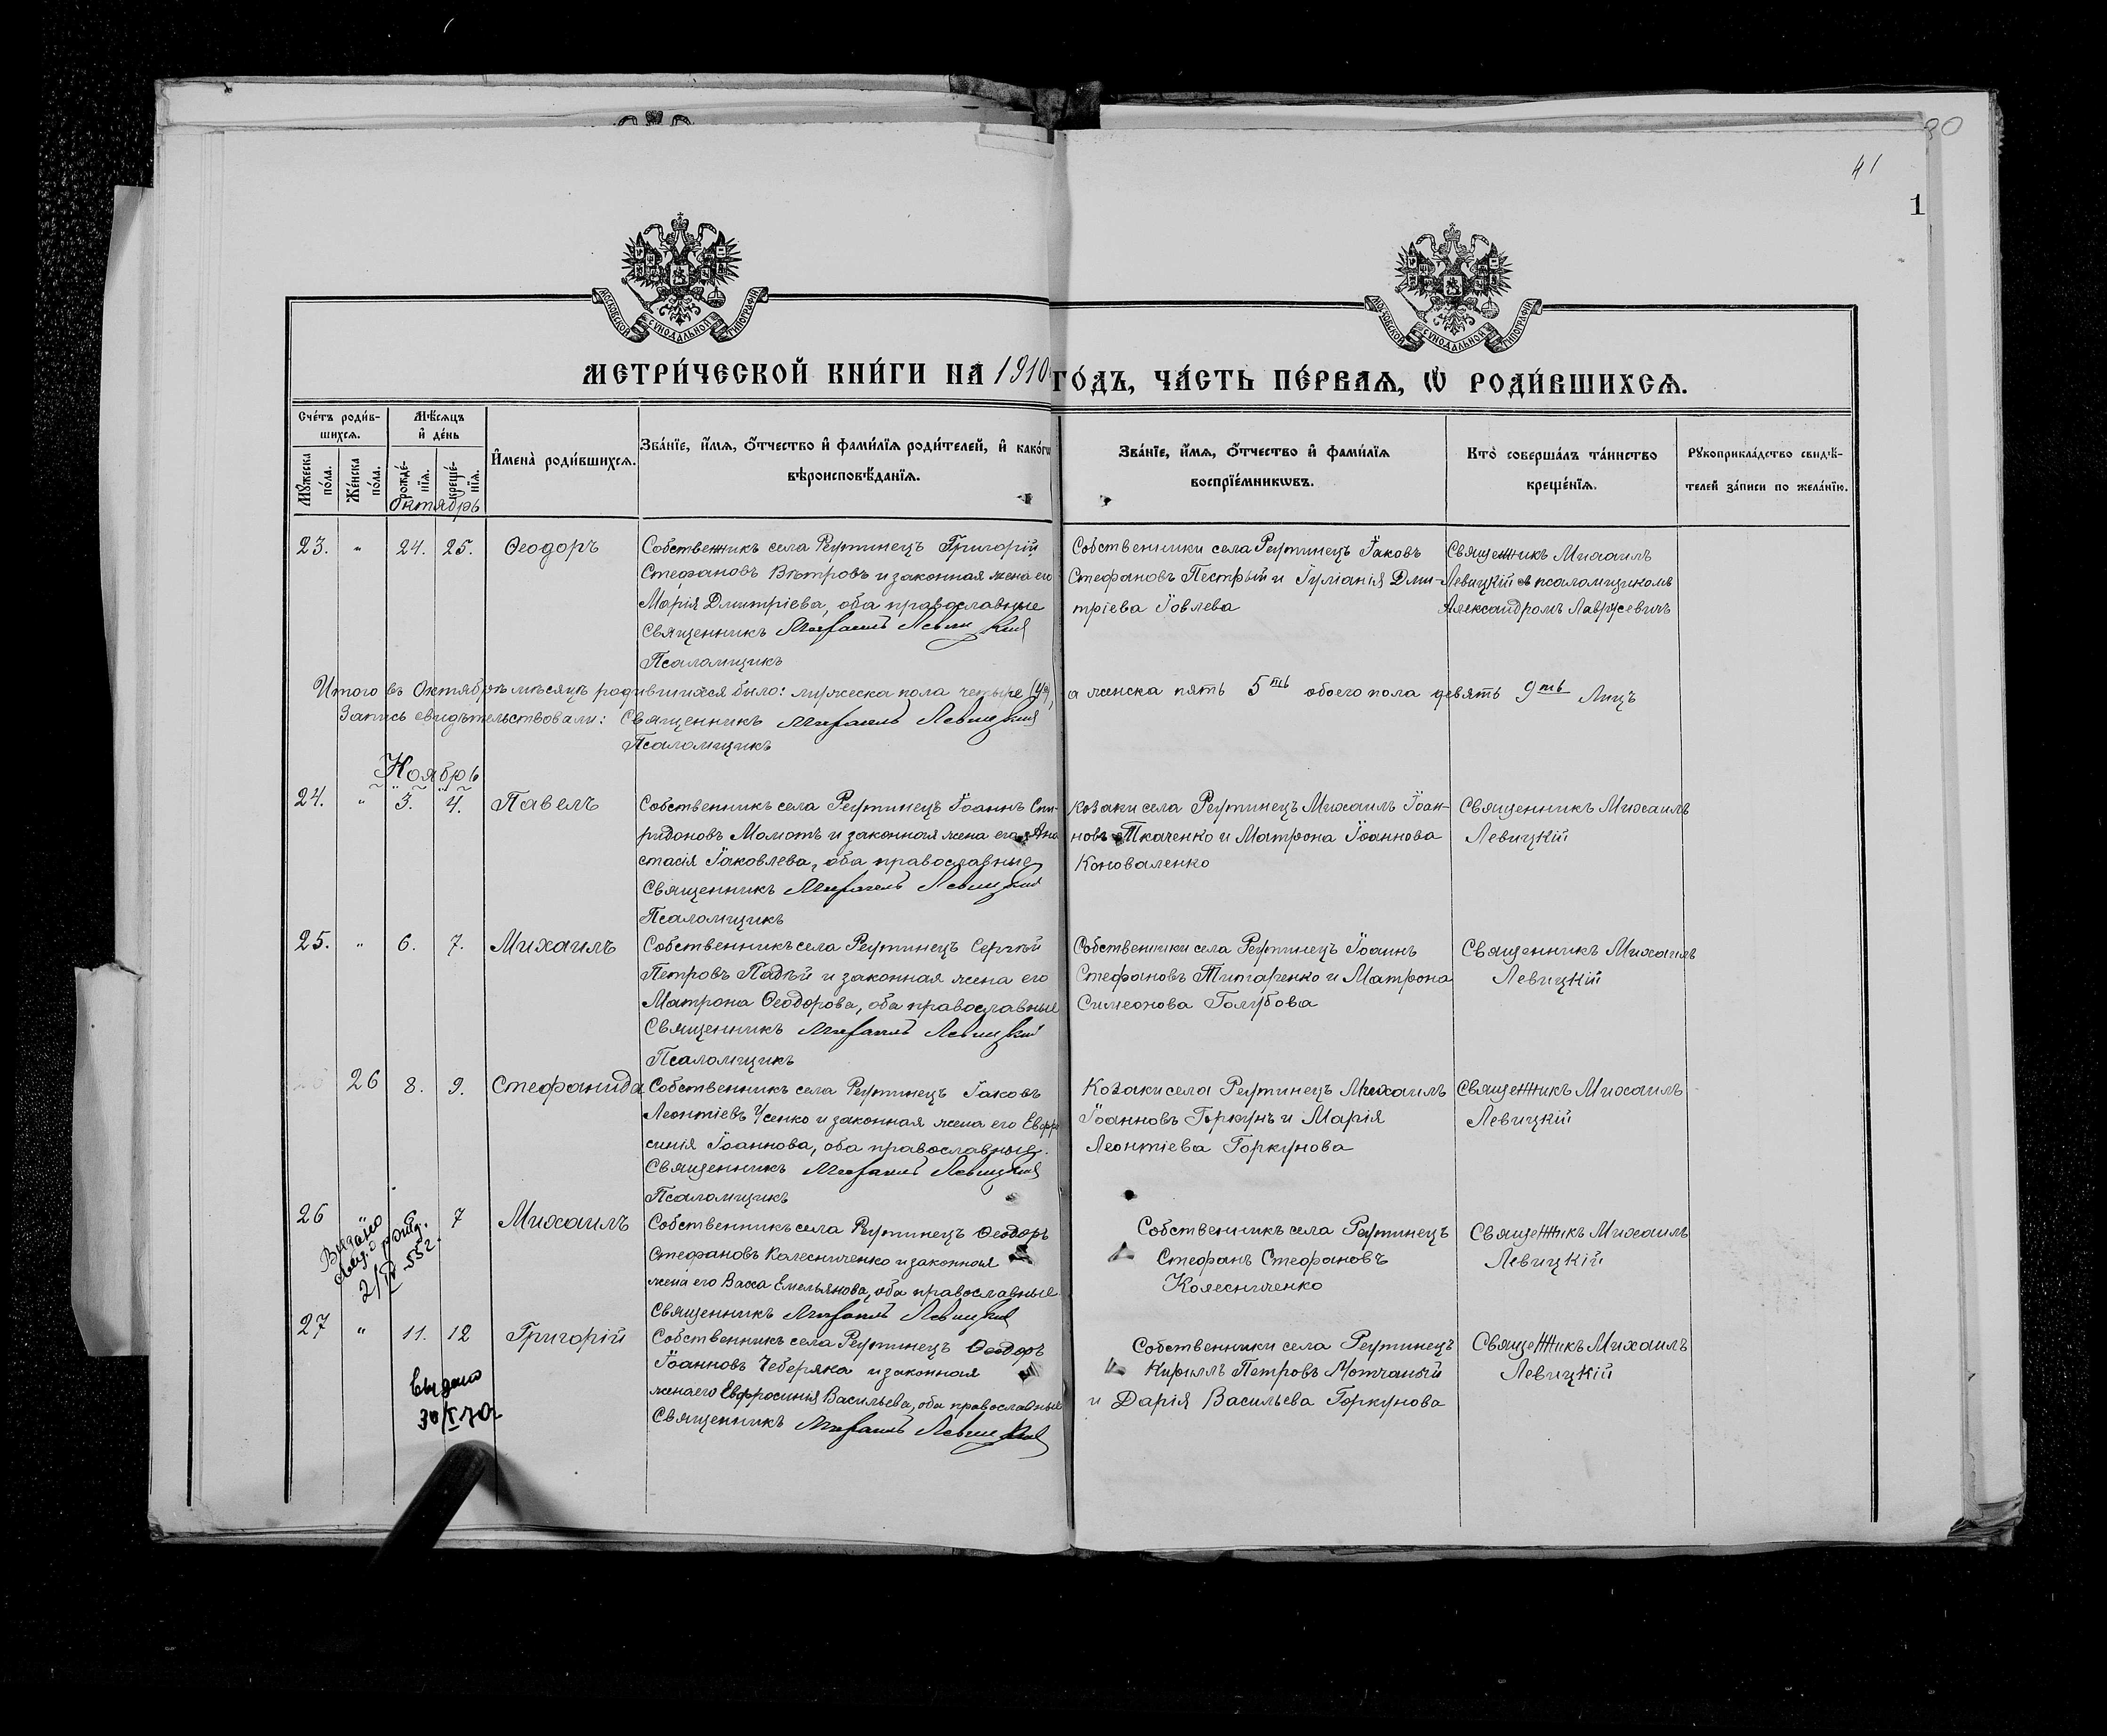 30
41
1
МОСКОВСКОЙ СУНОДАЛЬНОЙ ТИПОГРАФІИ
МОСКОВСКОЙ СУНОДАЛЬНОЙ ТИПОГРАФІИ
МЕТРИ́ЧЕСКОЙ КНИ́ГИ НА 1910 ГО́ДЪ, ЧА́СТЬ ПЕ́РВАѦ, Ѡ҆ РОДИ́ВШИХСѦ.
Сче́тъ роди́в-
шихсѧ.
Мѣ́сѧцъ
и҆ де́нь
Мꙋ́жеска по́ла.
Же́нска по́ла.
рожде́-нїѧ.
креще́-нїѧ.
И҆мена̀ роди́вшихсѧ.
Зва́нїе, и҆́мѧ, ѻ҆́тчество и҆ фами́лїѧ роди́телей, и҆ како́гѡ
вѣроисповѣ́данїѧ.
Зва́нїе, и҆́мѧ, ѻ҆́тчество и҆ фами́лїѧ
воспрїе́мникѡвъ.
Кто̀ соверша́лъ та́инство
креще́нїѧ.
Рꙋкоприкла́дство свидѣ́-
телей за́писи по жела́нїю.
Октябрь
23. " 24. 25. Ѳеодоръ
Собственникъ села Реутинецъ Григорій
Стефановъ Вѣтровъ и законная жена его
Марія Дмитріева, оба православные
Священникъ Михаилъ Левицкій
Псаломщикъ
Собственники села Реутинецъ Іаковъ
Стефановъ Пестрый и Іуліанія Дми-
тріева Іовлева
Священникъ Михаилъ
Левицкій съ псаломщикомъ
Александромъ Лаврусевичъ
Итого въ Октябрѣ мѣсяцѣ родившихся было: мужеска пола четыре (4), а женска пять 5ть обоего пола девять 9ть Лицъ
Запись свидѣтельствовали: Священникъ Михаилъ Левицкій
Псаломщикъ
Ноябрь
24. " 3. 4. Павелъ
Собственникъ села Реутинецъ Іоаннъ Спи-
ридоновъ Мамотъ и законная жена его Ана
стасія Іаковлева, оба православные
Священникъ Михаилъ Левицкій
Псаломщикъ
Козаки села Реутинецъ Михаилъ Іоан-
новъ Ткаченко и Матрона Іоаннова
Коноваленко
Священникъ Михаилъ
Левицкій
25. " 6. 7. Михаилъ
Собственникъ села Реутинецъ Сергѣй
Петровъ Падѣй и законная жена его
Матрона Ѳеодорова, оба православные
Священникъ Михаилъ Левицкій
Псаломщикъ
Собственники села Реутинецъ Іоаннъ
Стефановъ Титаренко и Матрона
Симеонова Голубова
Священникъ Михаилъ
Левицкій
26 8. 9. Стефанида
Собственникъ села Реутинецъ Іаковъ
Леонтіевъ Усенко и законная жена его Евфро
синія Іоаннова, оба православные.
Священникъ Михаилъ Левицкій
Псаломщикъ
Козаки села Реутинецъ Михаилъ
Іоанновъ Горкунъ и Марія
Леонтіева Горкунова
Священникъ Михаилъ
Левицкій
26 " 6. 7 Михаилъ
Выдано
свид. о рожд.
2/IV-55г.
Собственникъ села Реутинецъ Ѳеодоръ
Стефановъ Калесниченко и законная
жена его Васса Емельянова, оба православные
Священникъ Михаилъ Левицкій
Собственникъ села Реутинецъ
Стефанъ Стефановъ
Колесниченко
Священникъ Михаилъ
Левицкій
27 " 11. 12 Григорій
Выдано
Собственникъ села Реутинецъ Ѳеодоръ
Іоанновъ Чеберяка и законная
жена его Евфросинія Васильева, оба православные
Священникъ Михаилъ Левицкій
Собственники села Реутинецъ
Кириллъ Петровъ Мотчаный
и Дарія Васильева Горкунова
Священникъ Михаилъ
Левицкій